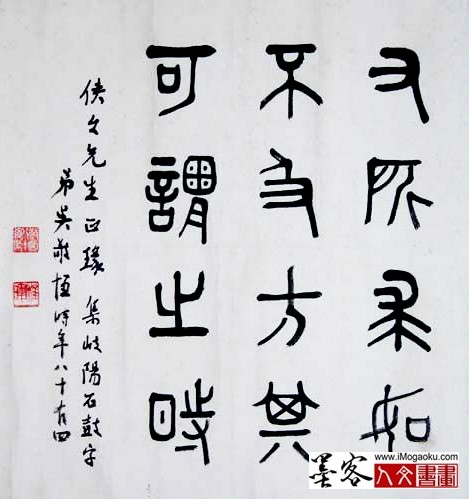 又所求如
不及方其
可謂之時
先生正 集岐陽石鼓字
弟吳敬恆時年八十有四
墨客
www.iMogaoku.com
人文書畫